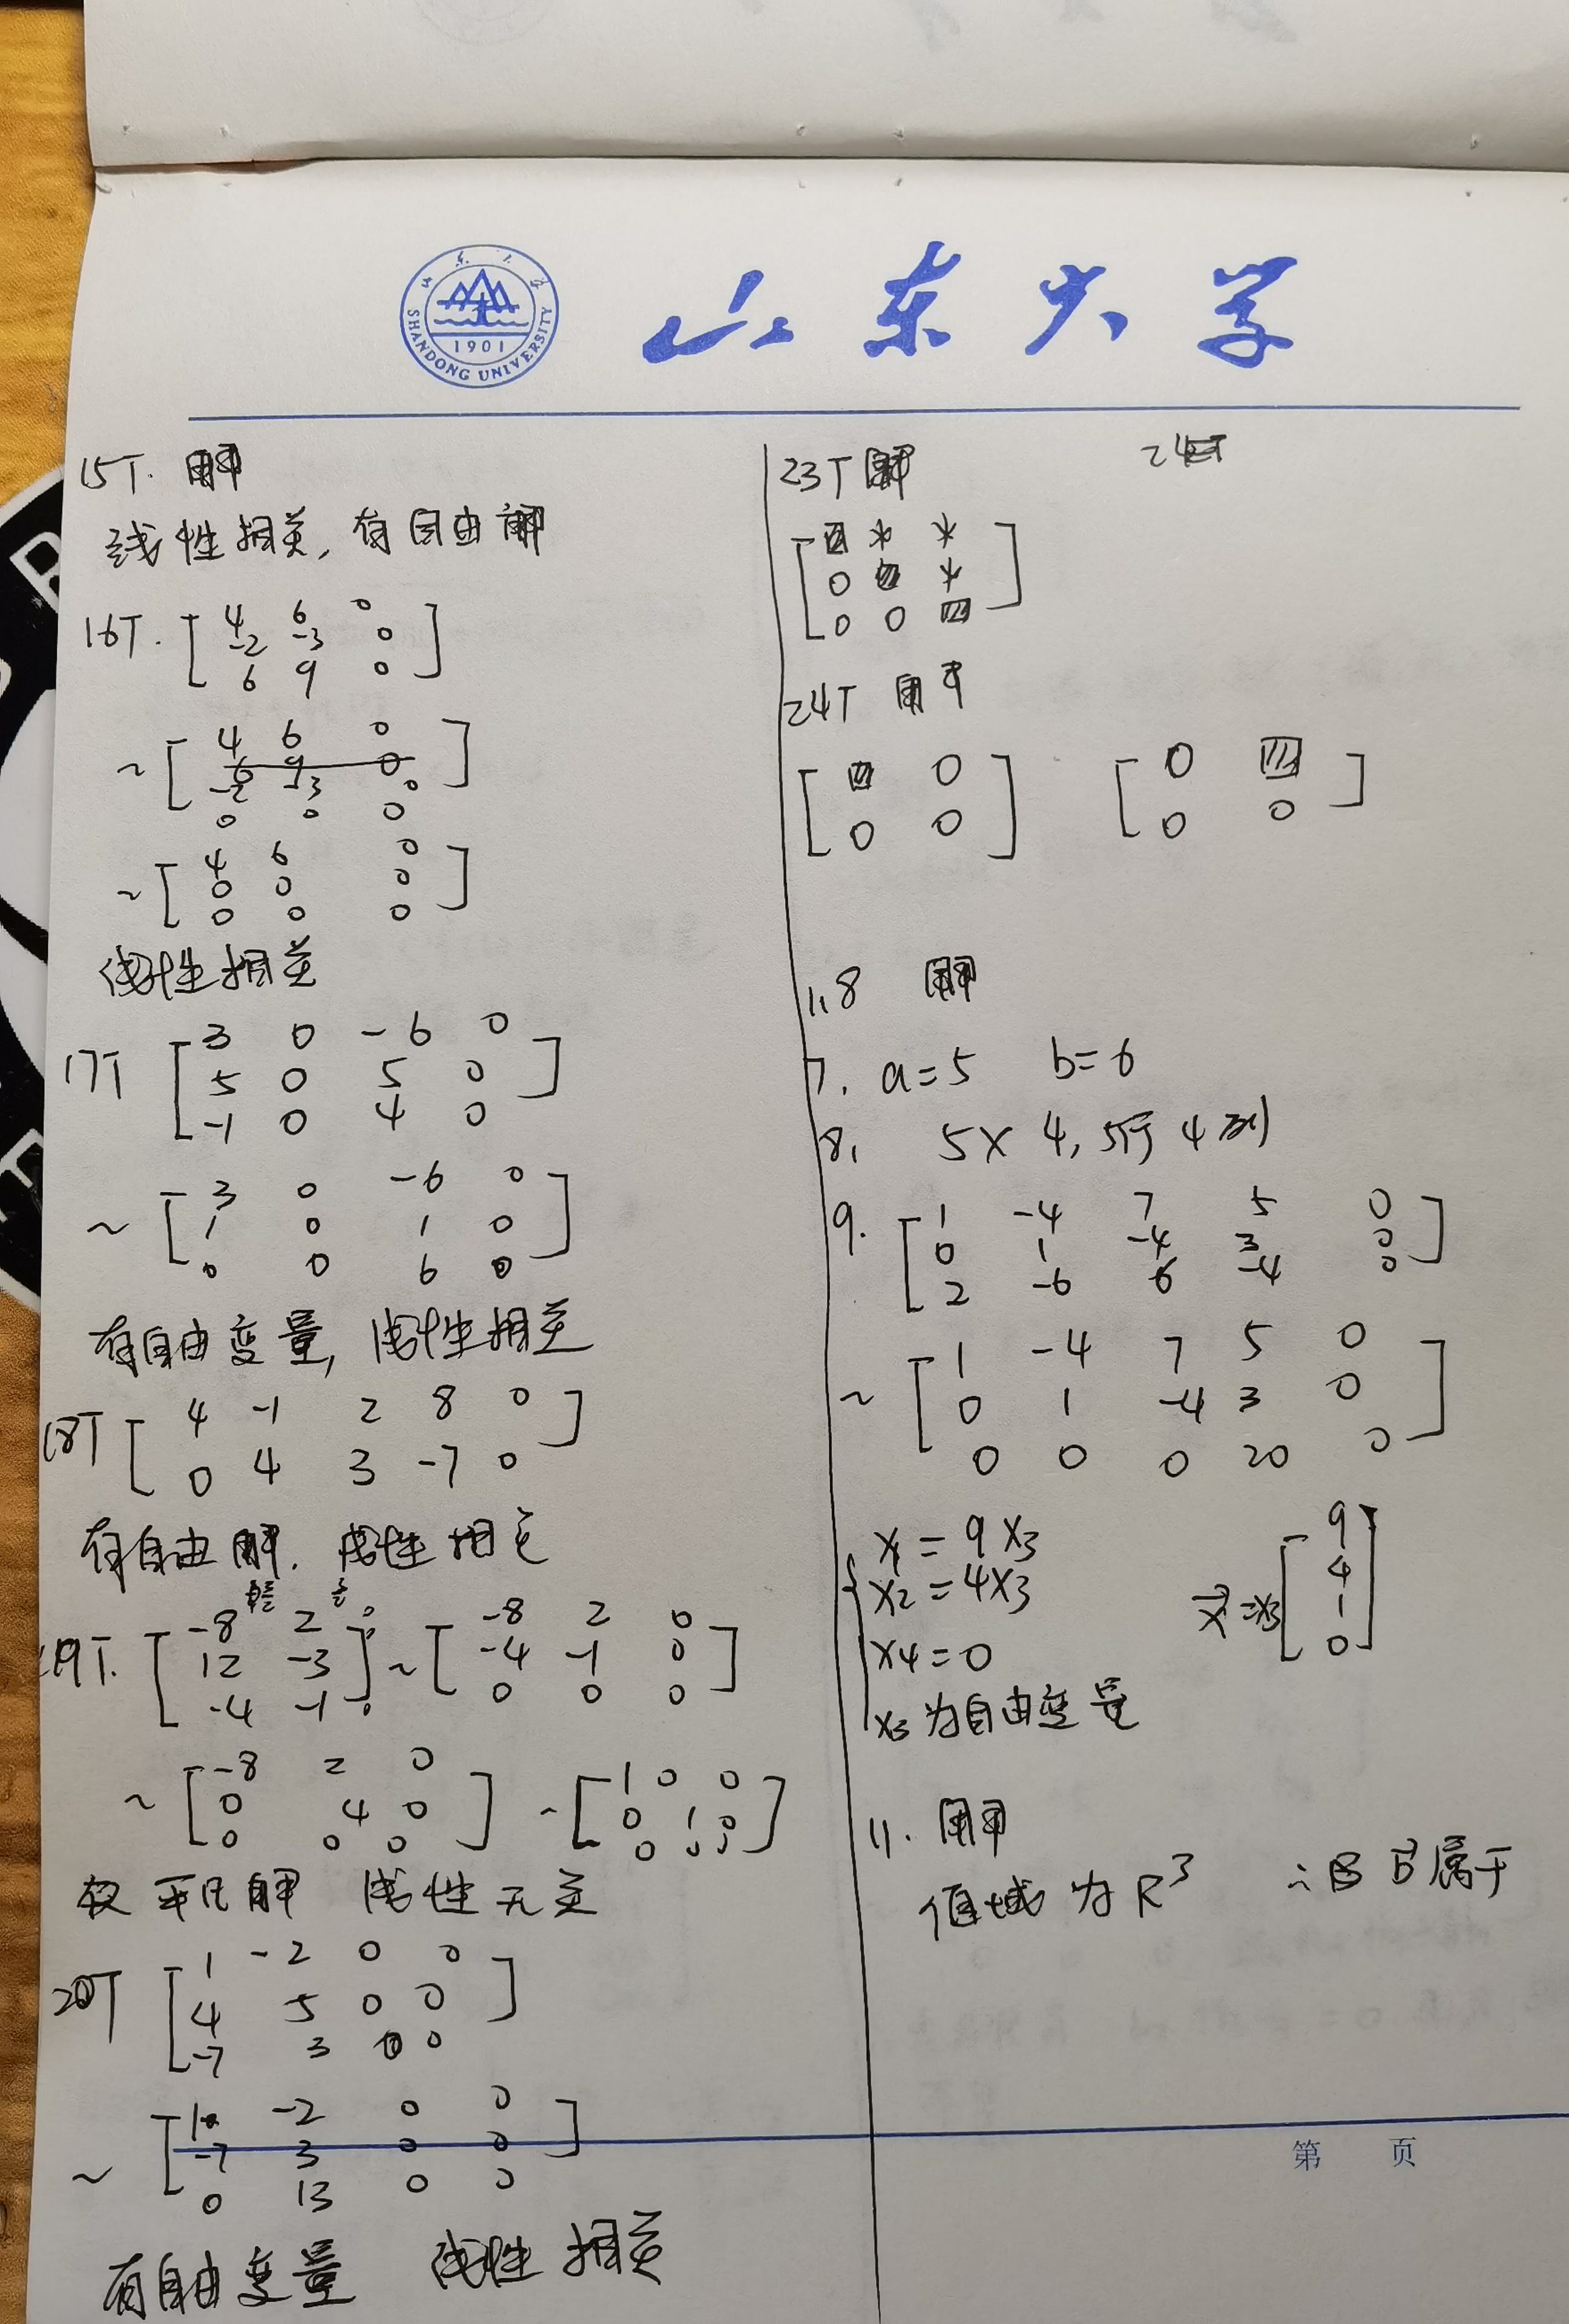 山东大学
SHANDONG UNIVERSITY
1901
15T. 解
线性相关, 有自由解
16T. [ 4 6 0
-2 -3 0
6 9 0 ]
~ [ 4 6 0
-2 -3 0
0 0 0 ]
~ [ 4 6 0
0 0 0
0 0 0 ]
线性相关
17T [ 3 0 -6 0
5 0 5 0
-1 0 4 0 ]
~ [ 3 0 -6 0
1 0 1 0
0 0 6 0 ]
有自由变量, 线性相关
18T [ 4 -1 2 8 0
0 4 3 -7 0 ]
有自由解. 线性相关
19T. [ -8 2 0
12 -3 0
-4 -1 0 ] ~ [ -8 2 0
-4 -1 0
0 0 0 ]
~ [ -8 2 0
0 4 0
0 0 0 ] ~ [ 1 0 0
0 1 0
0 0 0 ]
仅平凡解 线性无关
20T [ 1 -2 0 0
4 5 0 0
-7 3 0 0 ]
~ [ 1 -2 0 0
-7 3 0 0
0 13 0 0 ]
有自由变量 线性相关
23T 解
[ * *
0 *
0 0 ]
24T 解
[ 0
0 0 ] [ 0
0 0 ]
1.8 解
7. a=5 b=6
8. 5×4, 5行4列
9. [ 1 -4 7 5 0
0 1 -4 3 0
2 -6 6 -4 0 ]
~ [ 1 -4 7 5 0
0 1 -4 3 0
0 0 0 20 0 ]
x1 = 9x3
x2 = 4x3
x4 = 0
x3为自由变量
x=x3 [ 9
4
1
0 ]
11. 解
值域为R³ ∴ b属于
第 页